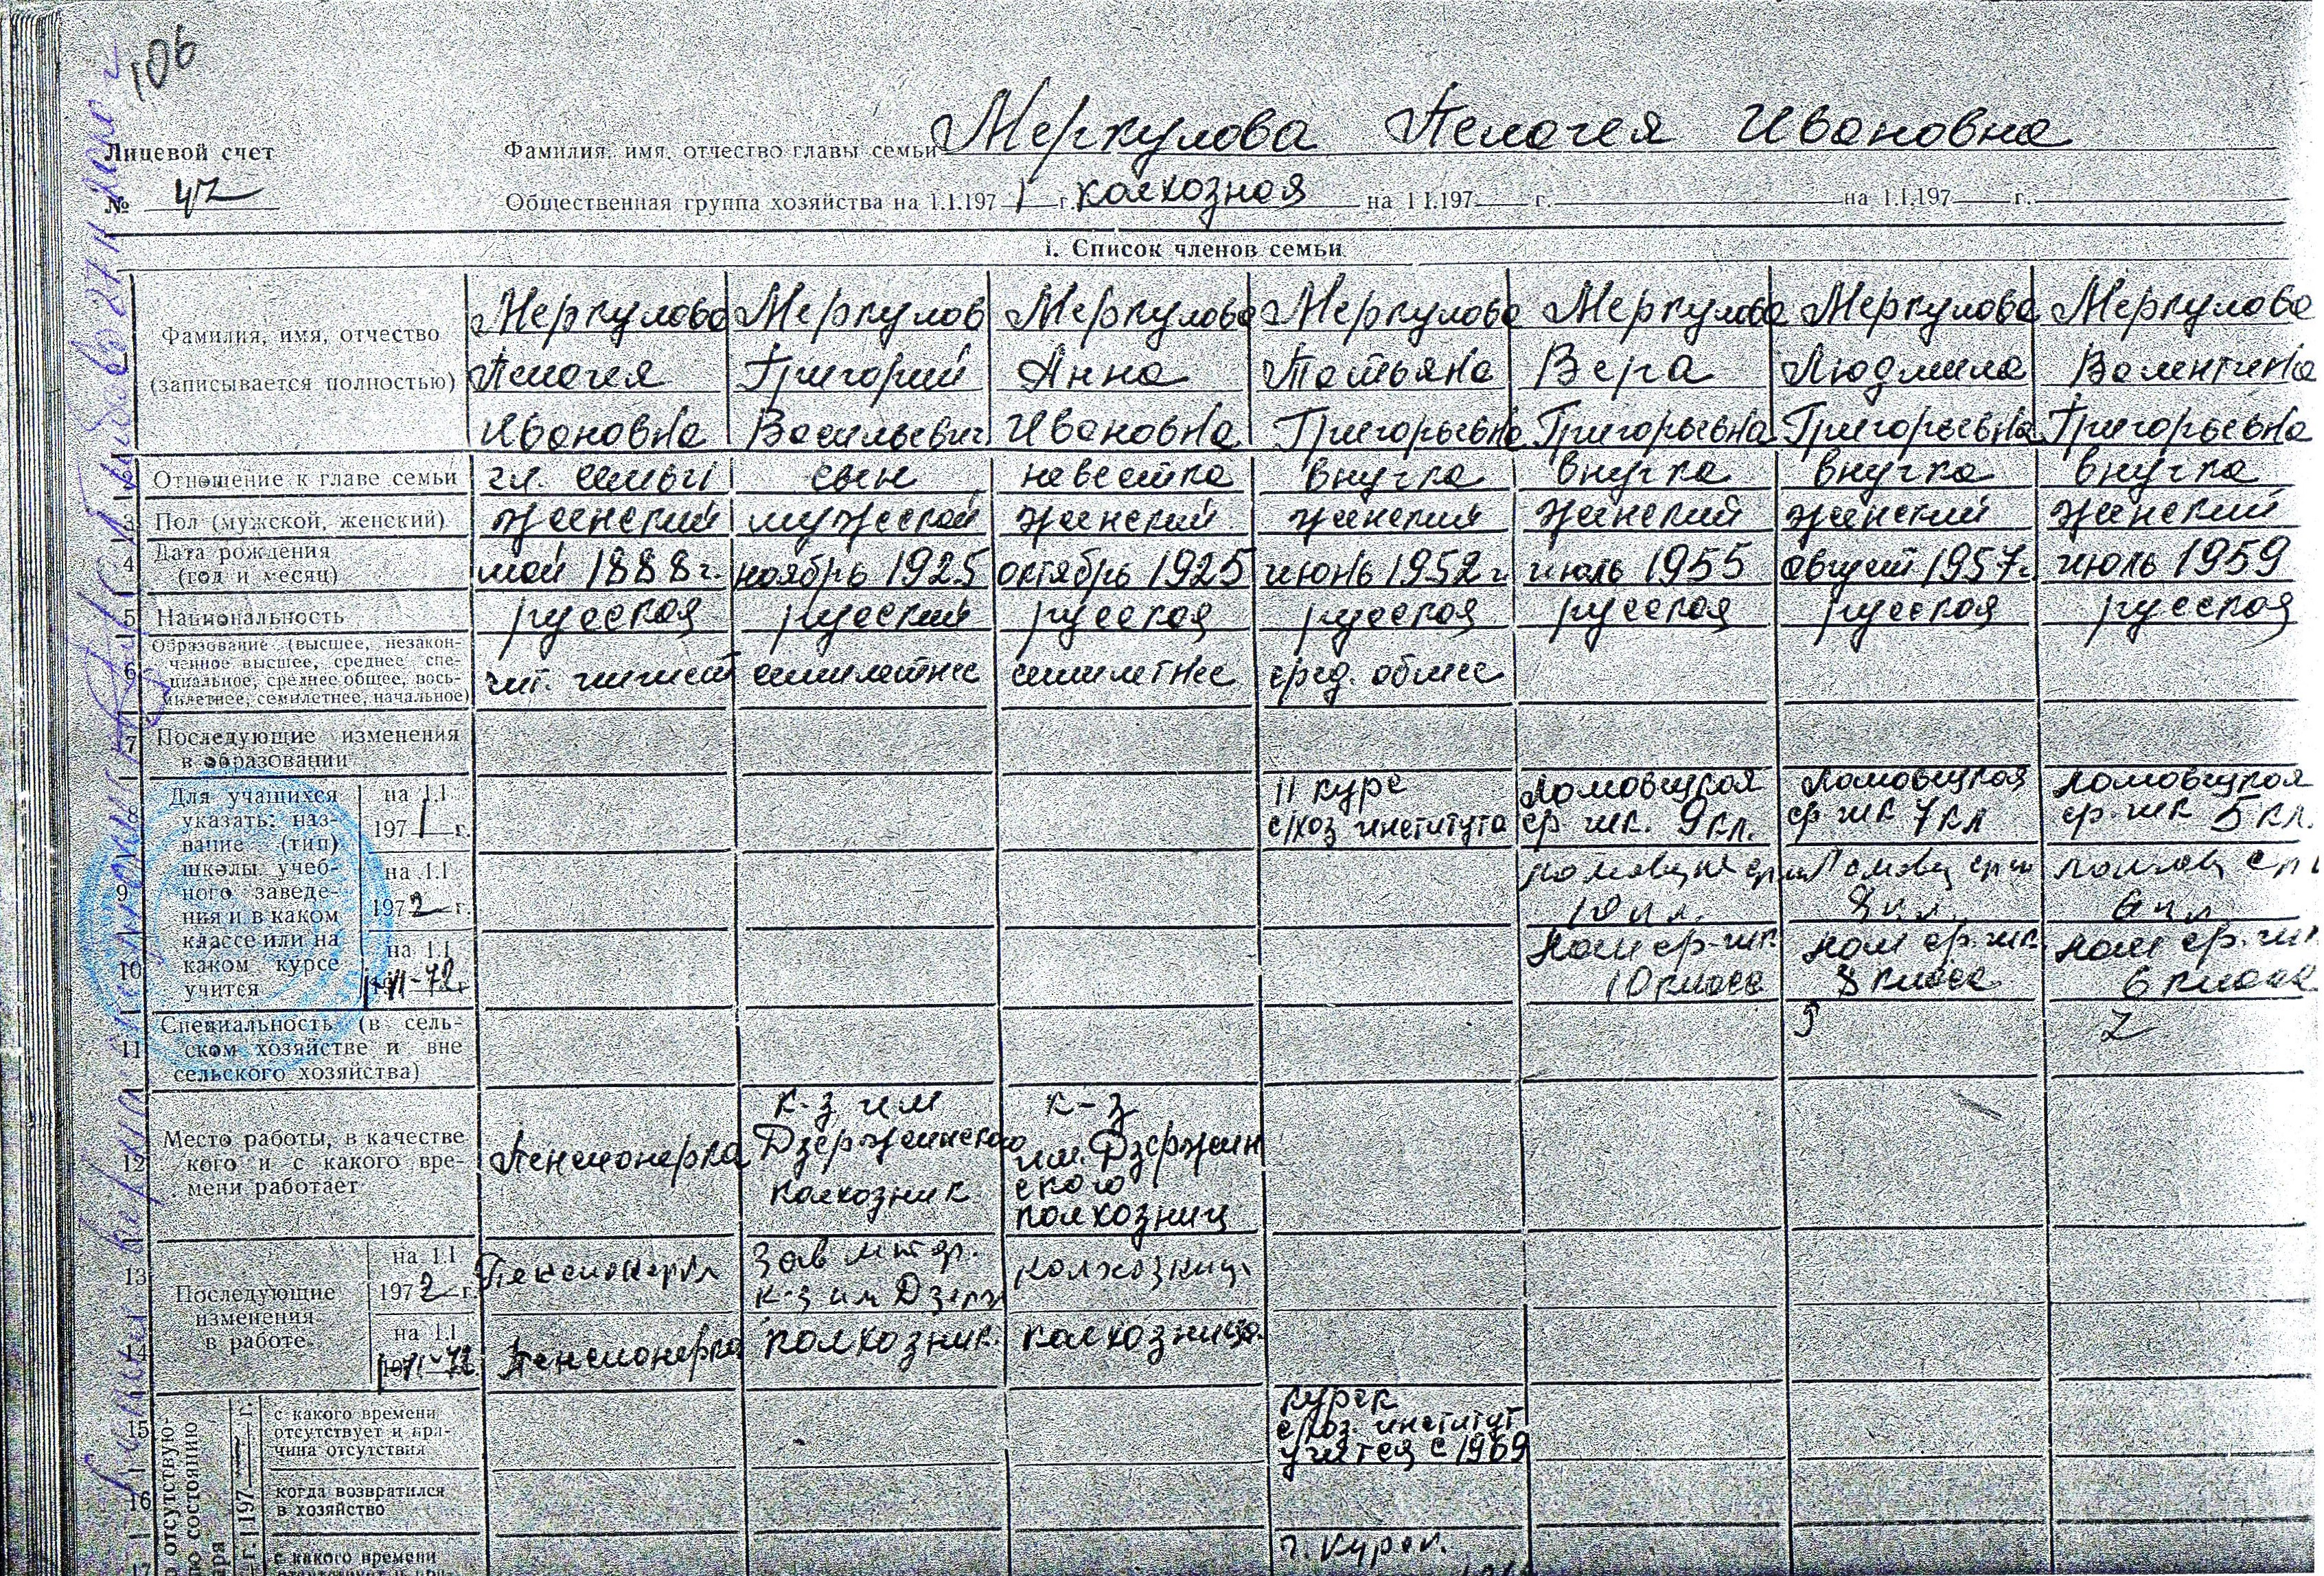 106
Лицевой счет
№ 42
Фамилия, имя, отчество главы семьи Меркулова Пелагея Ивановна
Общественная группа хозяйства на 1.I.1971 г. колхозная на 1 I.197 г. на 1.I.197 г.
I. Список членов семьи
Фамилия, имя, отчество
(записывается полностью)
Меркулова Меркулов Меркулова Меркулова Меркулова Меркулова Меркулова
Пелагея Григорий Анна Татьяна Вера Людмила Валентина
Ивановна Васильевич Ивановна Григорьевна Григорьевна Григорьевна Григорьевна
Отношение к главе семьи гл. семьи сын невестка внучка внучка внучка внучка
3 Пол (мужской, женский) женский мужской женский женский женский женский женский
4 Дата рождения
(год и месяц)
май 1888 г. ноябрь 1925 октябрь 1925 июнь 1952 г. июль 1955 август 1957 г. июль 1959
5 Национальность русская русский русская русская русская русская русская
6 Образование (высшее, незакон-
ченное высшее, среднее спе-
циальное, среднее общее, вось-
милетнее, семилетнее, начальное)
чит. пишет семилетнее семилетнее сред. общее
7 Последующие изменения
в образовании
8 Для учащихся
указать: наз-
вание (тип)
школы учеб-
ного заведе-
ния и в каком
классе или на
каком курсе
учится
на 1.I
1971 г.
II курс Ломовецкая Ломовецкая Ломовецкая
с/хоз института ср шк. 9 кл. ср шк 7 кл ср. шк 5 кл.
9 на 1.I
1972 г.
10 кл. 8 кл. 6 кл
10 на 1.I
Лом ср. шк. Лом ср. шк. Лом ср. шк
10 класс 8 класс 6 класс
11 Специальность (в сель-
ском хозяйстве и вне
сельского хозяйства)
9 7
12 Место работы, в качестве
кого и с какого вре-
мени работает
Пенсионерка
к-з им
Дзержинского
колхозник
к-з
им. Дзержин
ского
колхозниц
13 Последующие
изменения
в работе
на 1.I
1972 г.
Пенсионерка
к-з им Дзерж
колхозниц
14 на 1.I
Пенсионерка колхозник. колхозница.
15 с какого времени
отсутствует и при-
чина отсутствия
Курск
с/хоз. институт
учится с 1969
16 когда возвратился
в хозяйство
17 с какого времени
г. Курск.